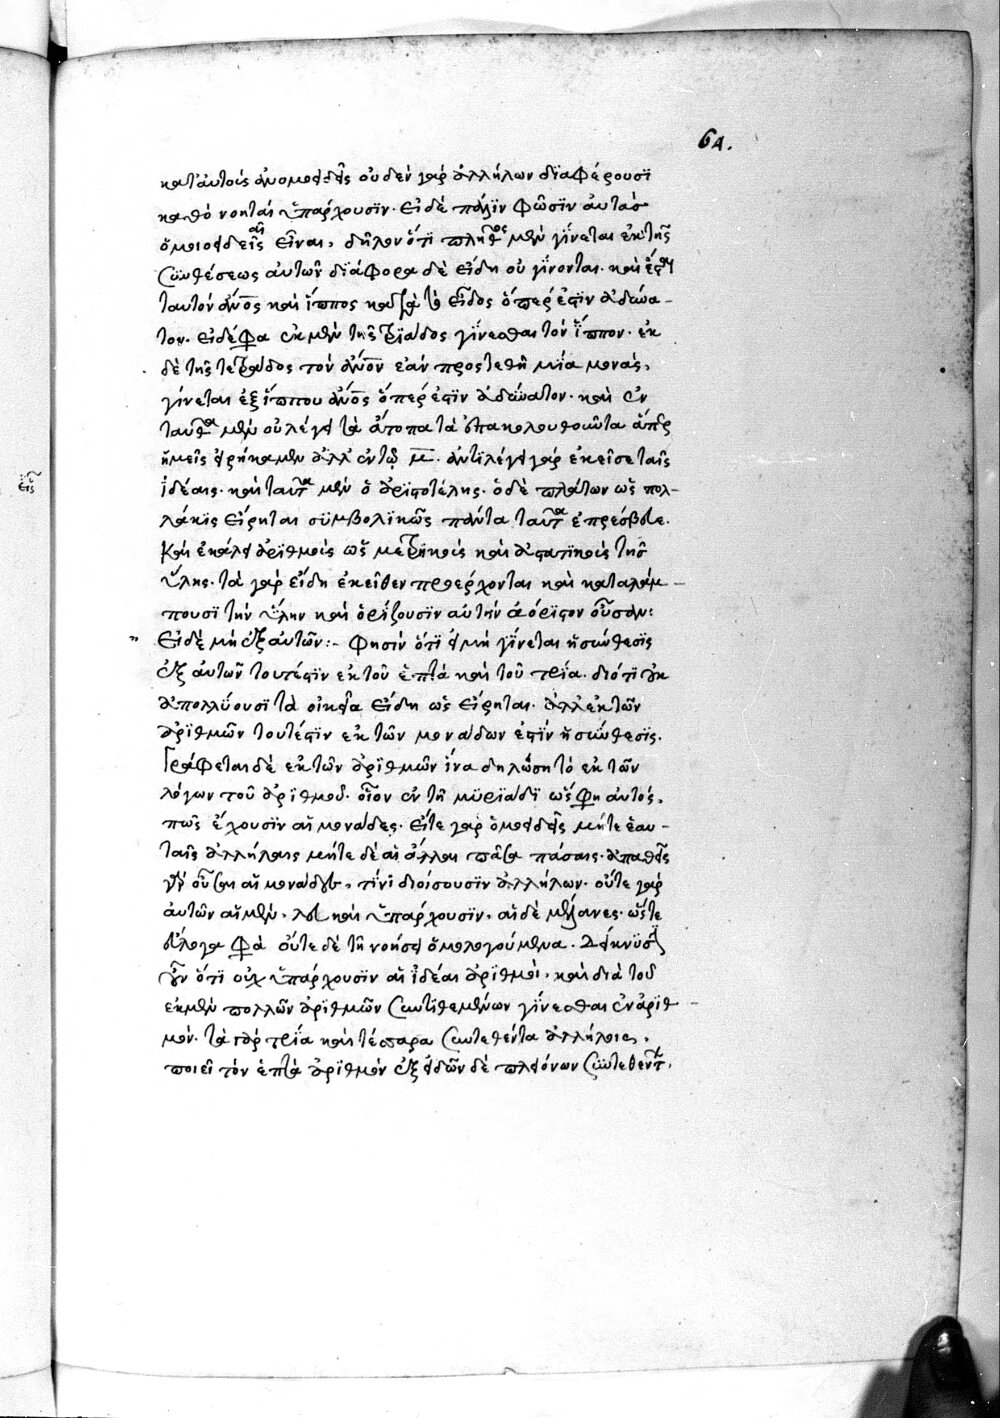 64.
κατ' αὐτοὺς ἀνομοειδεῖς οὐδὲν γὰρ ἀλλήλων διαφέρουσι
καθὸ νοηταὶ ὑπάρχουσιν. εἰ δὲ πάλιν φῶσιν αὐτὰς
ὁμοιοειδεῖς εἶναι, δῆλον ὅτι πλῆθος μὲν γίνεται ἐκ τῆς
συνθέσεως αὐτῶν διάφορα δὲ εἴδη οὐ γίνονται. καὶ ἔσται
ταυτὸν ἄνος καὶ ἵππος κατὰ τὸ εἶδος ὅπερ ἐστὶν ἀδύνα-
τον. εἰ δέ φασι ἐκ μὲν τῆς τριάδος γίνεσθαι τὸν ἵππον. ἐκ
δὲ τῆς τετράδος τὸν ἄνον ἐὰν προστεθῆ μία μονὰς,
γίνεται ἐξ ἵππου ἄνος ὅπερ ἐστὶν ἀδύνατον. καὶ ἐν
ταῦθα μὲν οὐ λέγει τὰ ἄτοπα τὰ ἐπακολουθοῦντα ἅπερ
ἡμεῖς εἰρήκαμεν ἀλλ' ἐν τῷ μ. ἀντιλέγει γὰρ ἐκεῖσε ταῖς
ἰδέαις. καὶ ταῦτα μὲν ὁ ἀριστοτέλης. ὁ δὲ πλάτων ὡς πολ-
λάκις εἴρηται συμβολικῶς πάντα ταῦτα ἐπρέσβευε.
καὶ ἐκάλει ἀριθμοὺς ὡς μετρητικοὺς καὶ τῆς
ὕλης. τὰ γὰρ εἴδη ἐκεῖθεν προέρχονται καὶ καταλάμ-
πουσι τὴν ὕλην καὶ ὁρίζουσιν αὐτὴν ἀόριστον οὖσαν:
" Εἰ δὲ μὴ ἐξ αὐτῶν:- φησὶν ὅτι εἰ μὴ γίνεται ἡ σύνθεσις
ἐξ αὐτῶν τουτέστιν ἐκ τοῦ ἑπτὰ καὶ τοῦ τρία. διότι οὐκ
ἀπολλύουσι τὰ οἰκεῖα εἴδη ὡς εἴρηται. ἀλλ' ἐκ τῶν
ἀριθμῶν τουτέστιν ἐκ τῶν μονάδων ἐστὶν ἡ σύνθεσις.
Γράφεται δὲ ἐκ τῶν ἀριθμῶν ἵνα δηλώση τὸ ἐκ τῶν
λόγων τοῦ ἀριθμοῦ. οἷον ἐν τῆ μυριάδι ὥς φησι αὐτὸς,
πῶς ἔχουσιν αἱ μονάδες. εἴτε γὰρ ὁμοειδεῖς μήτε ἑαυ-
ταῖς ἀλλήλαις μήτε δὲ αἱ ἄλλαι πᾶσαι πάσαις. ἀπαθεῖς
γὰρ οὖσαι αἱ μονάδες, τίνι διοίσουσιν ἀλλήλων. οὔτε γὰρ
αὐτῶν αἱ μὲν, λευκαὶ ὑπάρχουσιν, αἱ δὲ μέλανες. ὥστε
οὔτε δὲ τῆ νοήσει ὁμολογούμενα. Δείκνυσι
οὖν ὅτι οὐχ ὑπάρχουσιν αἱ ἰδέαι ἀριθμοὶ, καὶ διὰ τοῦ
ἐκ μὲν πολλῶν ἀριθμῶν συντιθεμένων γίνεσθαι ἓν ἀριθ-
μὸν. τὰ γὰρ τρία καὶ τέσσαρα συντεθέντα ἀλλήλοις,
ποιεῖ τὸν ἑπτὰ ἀριθμὸν ἐξ εἰδῶν δὲ πλειόνων συντεθέντων,